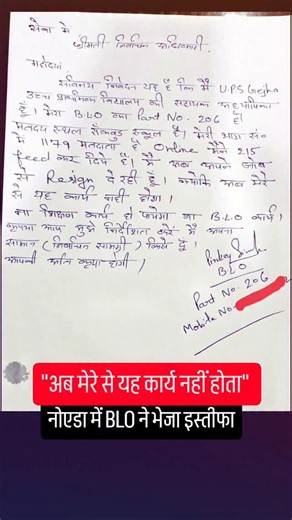 सेवा में
श्रीमती निर्वाचन अधिकारी,
महोदया
सविनय निवेदन यह है कि मैं U.P.S Gejha
उच्च प्राथमिक विद्यालय की सहायक अध्यापिका
हूँ। मेरा B.L.O का Part No. 206 है
मतदेय स्थल रॉकवुड स्कूल है। मेरी भाग सं०
में 1179 मतदाता हैं Online मैंने 215
feed कर दिये हैं। मैं अब अपने जॉब
से Resign दे रही हूँ। क्योंकि अब मेरे
से यह कार्य नहीं होगा।
ना शिक्षण कार्य हो पायेगा ना B.L.O कार्य।
कृपया आप मुझे निर्देशित करें मैं अपना
सामान (निर्वाचन सामग्री) किसे दूँ।
आपकी अति कृपा होगी।
Pinky Singh
B.L.O
Part No. 206
Mobile No
"अब मेरे से यह कार्य नहीं होता"
नोएडा में BLO ने भेजा इस्तीफा